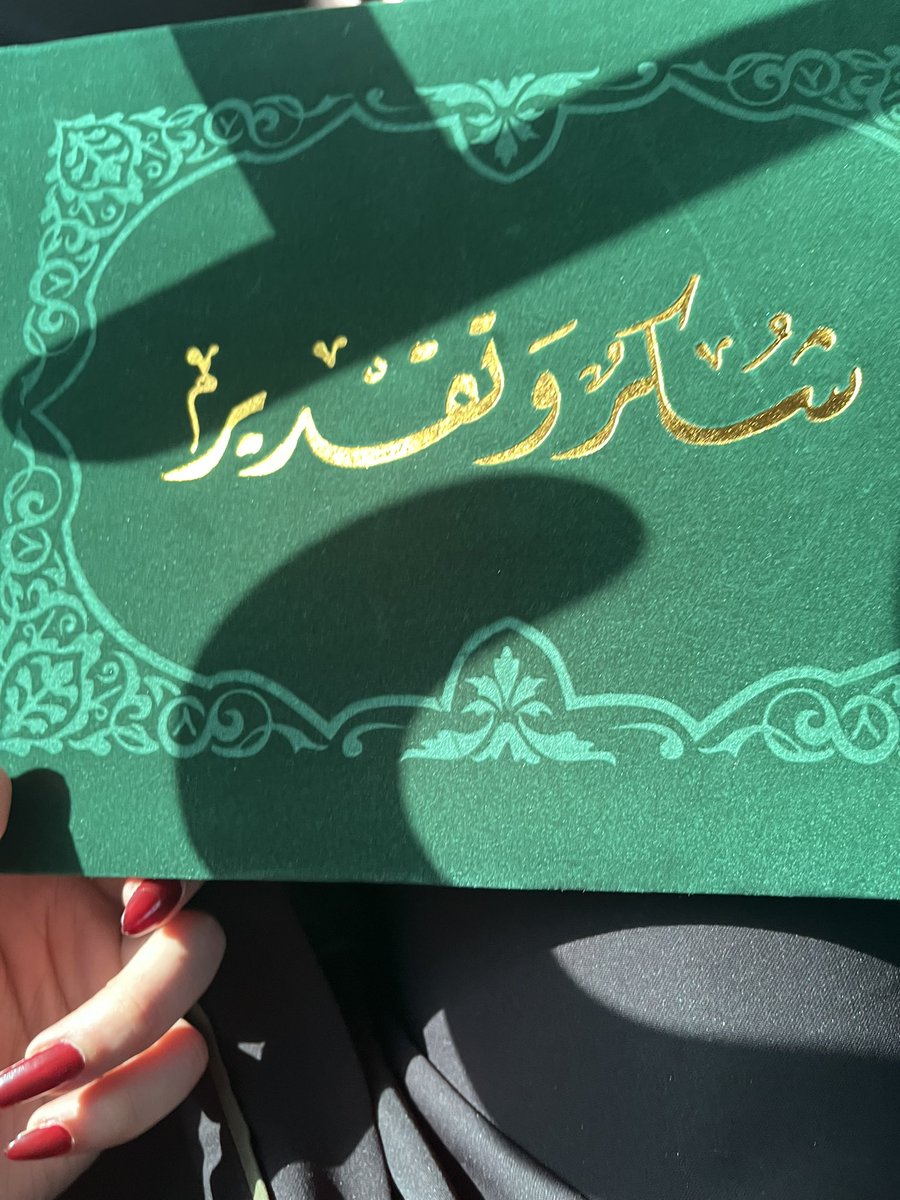 شُكر وَتقدير